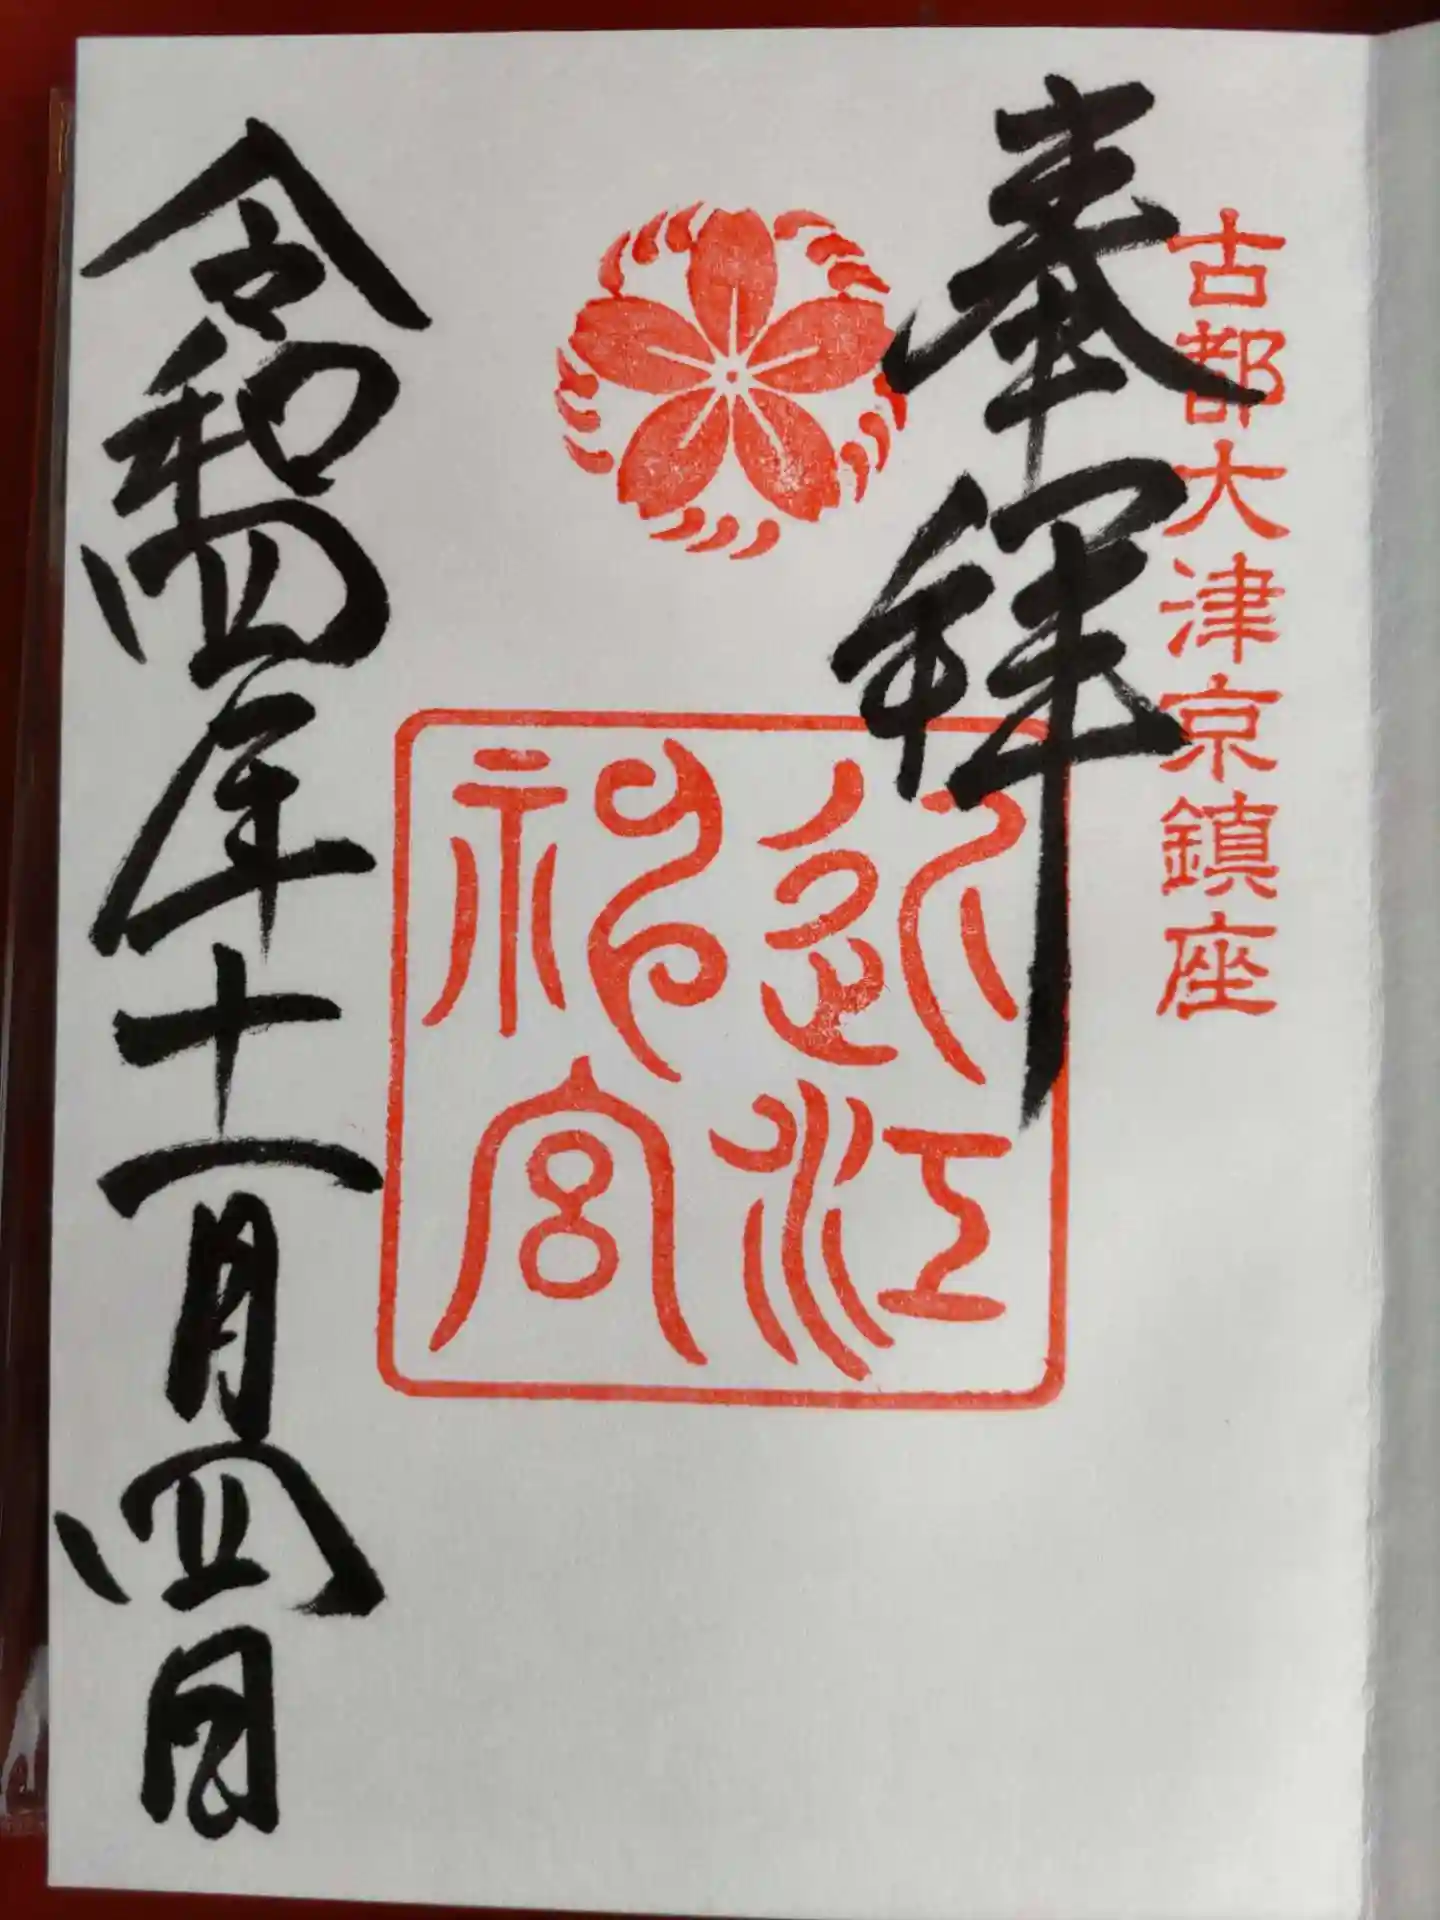 古都大津京鎮座
奉拝
近江
神宮
令和四年十一月四日